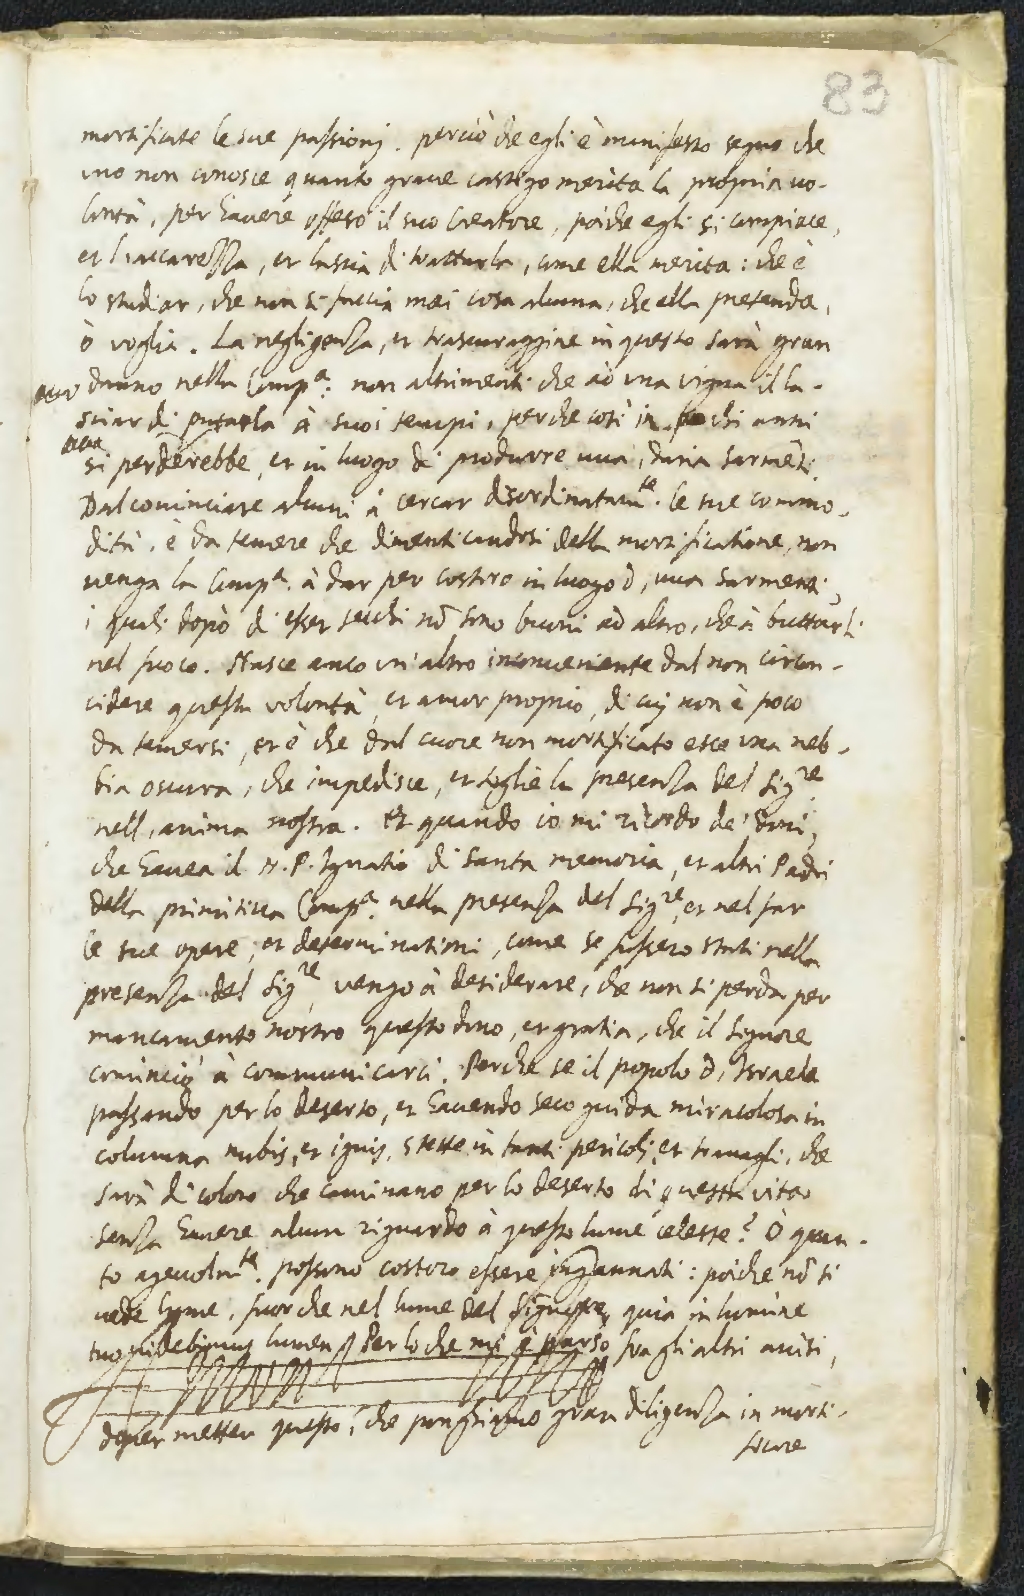 83
mortificate le sue passioni. perciò che egli è manifesto segno che
uno non conosce quanto graue castigo merita la propria uo-
lontà, per hauere offeso il suo Creatore, poiche egli si compiace,
et l'accarezza, et lascia di trattarla, come ella merita: che è
lo studiar, che non si faccia mai cosa alcuna, che ella pretenda,
ò voglia. La negligenza, et trascuraggine in questo sarà gran
danno nella Compa. non altrimenti che ad una vigna il la-
sciar di putarla à suoi tempi, perche così in pochi anni
si perderebbe, et in luogo di produrre uua, daria sarmẽti.
Dal cominciare alcuni à cercar disordinatamte. le sue commo-
dità, è da temere che dimenticandosi della mortificatione, non
uenga la Compa. à dar per costoro in luogo d, uua sarmenti,
i quali dopò di esser secchi nõ sono buoni ad altro, che à buttarli
nel fuoco. Nasce anco un'altro inconueniente dal non circon-
cidere questa volontà, et amor proprio, di cui non è poco
da temersi, et è che dal cuore non mortificato esce una neb-
bia oscura, che impedisce, et toglie la presenza del Sigre
nell, anima nostra. Et quando io mi ricordo de' doni,
che hauea il N. P. Ignatio di santa memoria, et altri Padri
della primitiua Compa. nella presenza del Sigre, et nel far
le sue opere, et determinationi, come se fossero stati nella
presenza del Sigre, vengo à desiderare, che non si perda per
mancamento nostro questo dono, et gratia, che il Signore
cominciò à communicarci. Perche se il popolo d, Israele
passando per lo deserto, et hauendo seco guida miracolosa in
columna nubis, et ignis, stette in tanti pericoli, et trauagli, che
sarà di coloro che caminano per lo deserto di questa vita
senza hauere alcun riguardo à questo lume celeste? Ò quan-
to ageuolmte. possono costoro essere ingannati: poiche nõ si
uede lume, fuor che nel lume del Signore, quia in lumine
tuo uidebimus lumen. Per lo che mi è parso fra gli altri auisi,
douer metter questo, che ponghiamo gran diligenza in morti-
ficare